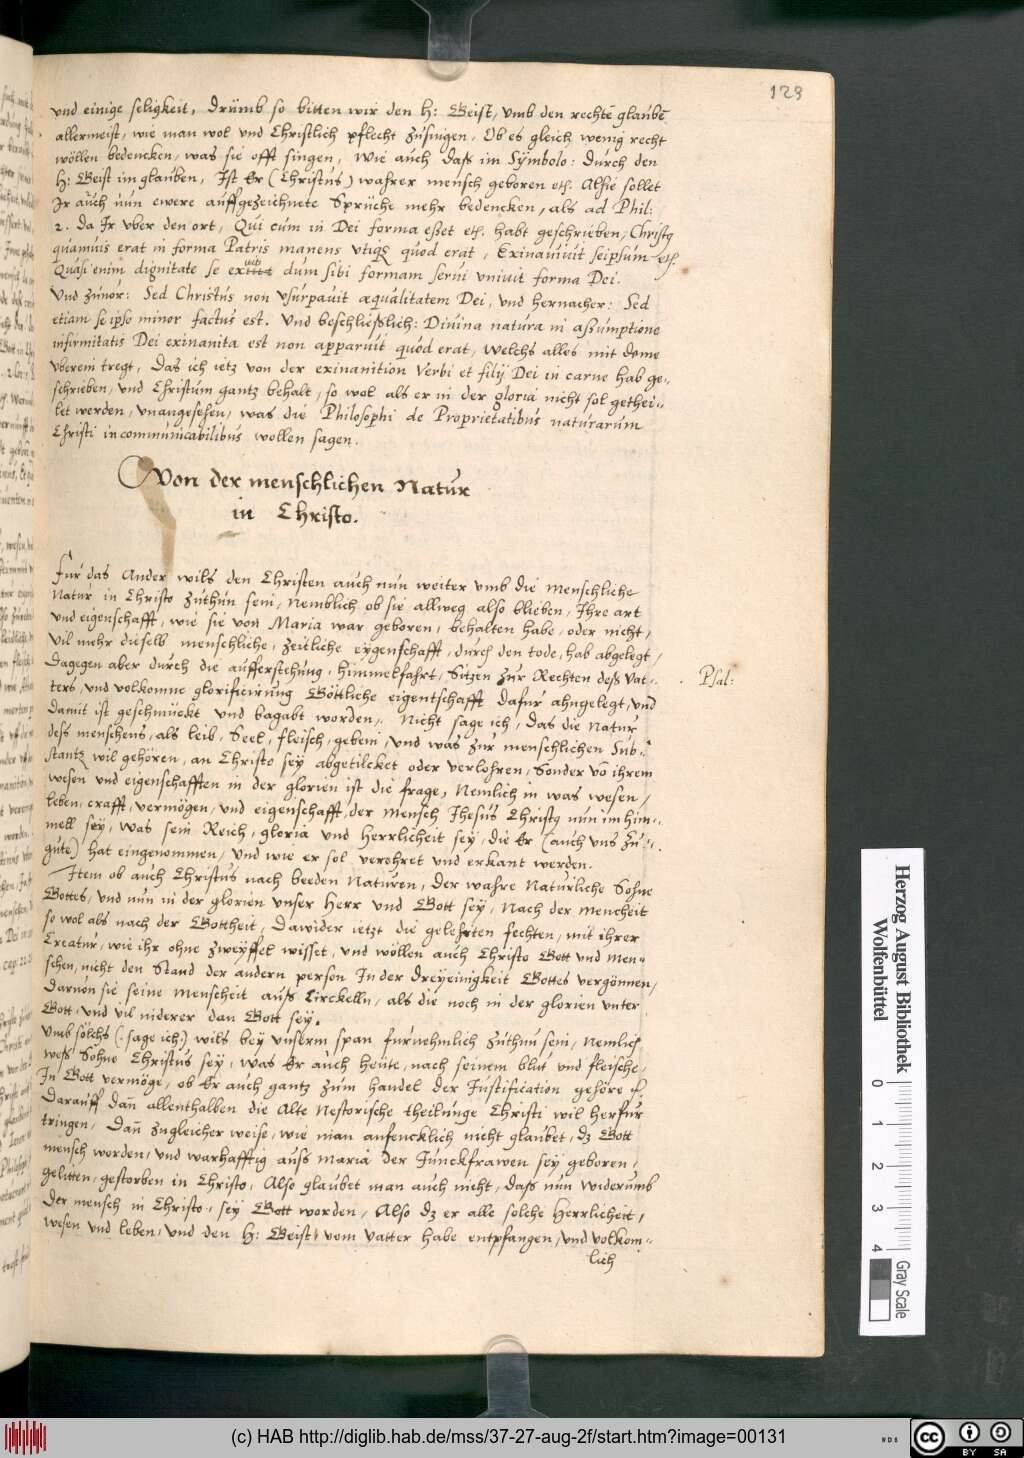 129
und einige seligkeit, drümb so bitten wir den H: Geist, umb den rechtē glaubē
allermeist, wie man wol und Christlich pflecht zusingen, Ob es gleich wenig recht
wöllen bedencken, was sie offt singen, wie auch daß im Symbolo: durch den
H: Geist im glauben, Ist Er (Christus) wahrer mensch geboren etc. Alhie sollet
Ir auch nun ewere auffgezeichnete Sprüche mehr bedencken, als ad Phil:
2. da Ir uber den ort, Qui cum in Dei forma esset etc. habt geschrieben, Christus
quamuis erat in forma Patris manens utique quod erat, Exinaniuit seipsum etc.
Quasi enim dignitate se dum sibi formam serui uniuit forma Dei.
Und zuuor: Sed Christus non usurpauit æqualitatem Dei, und hernacher: Sed
etiam se ipso minor factus est. Und beschließlich: Diuina natura in assumptione
infirmitatis Dei exinanita est non apparuit quod erat, welchs alles mit deme
uberein tregt, Das ich ietz von der exinanition Verbi et filij Dei in carne hab ge-
schrieben, und Christum gantz behalt, so wol als er in der gloria nicht sol gethei-
let werden, unangesehen, was die Philosophi de Proprietatibus naturarum
Christi incommunicabilibus wollen sagen.
Von der menschlichen Natur
in Christo.
Fur das Ander wils den Christen auch nun weiter umb die Menschliche
Natur in Christo zuthun sein, Nemblich ob sie allweg also blieben, Ihre art
und eigenschafft, wie sie von Maria war geboren, behalten habe, oder nicht,
Vil mehr dieselb menschliche, zeitliche eygenschafft, durch den tode, hab abgelegt,
Dagegen aber durch die aufferstehung, Himmelfahrt, Sitzen zur Rechten deß Vat-
Psal:
ters, und volkomne glorificirung Göttliche eigentschafft dafur ahngelegt, und
damit ist geschmückt und bagabt worden. Nicht sage ich, das die Natur
deß menschens, als leib, Seel, fleisch, gebein, und was zur menschlichen Sub-
stantz wil gehören, an Christo sey abgetilcket oder verlohren, Sonder vō ihrem
wesen und eigenschafften in der glorien ist die frage, Nemlich in was wesen,
leben, crafft, vermögen, und eigenschafft, der Mensch Jhesus Christus nun im him-
mell sey, was sein Reich, gloria und Herrlicheit sey, die Er (auch uns zu
gute) hat eingenommen, Und wie er sol verehret und erkant werden.
Item ob auch Christus nach beeden Naturen, der wahre Naturliche Sohne
Gottes, und nun in der glorien unser Herr und Gott sey, Nach der Mencheit
so wol als nach der Gottheit, Dawider ietzt die gelehrten fechten, mit ihrer
Creatur, wie ihr ohne zweyffel wisset, und wöllen auch Christo Gott und Men-
schen, nicht den Stand der andern person In der dreyeinigkeit Gottes vergönnen,
Daruon sie seine Menscheit auß Circkelln, als die noch in der glorien unter
Gott, und vil niderer dan Gott sey.
Umb sölchs (: sage ich:) wils bey unserm span furnehmlich zuthun sein, Nemlich
weß Sohne Christus sey, was Er auch heute, nach seinem blut und fleische,
In Gott vermöge, ob Er auch gantz zum handel der Justification gehöre etc.
Darauff dann allenthalben die Alte Nestorische theilunge Christi wil herfur
tringen, Dann zugleicher weise, wie man anfencklich nicht glaubet, dz Gott
mensch worden, und warhafftig auß Maria der Junckfrawen sey geboren,
gelitten, gestorben in Christo, Also glaubet man auch nicht, daß nun widerumb
Der mensch in Christo, sey Gott worden, Also dz er alle solche Herrlicheit,
wesen und leben, und den H: Geist, vom Vatter habe entpfangen, und volkom-
lich
Herzog August Bibliothek
Wolfenbüttel
0 1 2 3 4
Gray Scale
(c) HAB http://diglib.hab.de/mss/37-27-aug-2f/start.htm?image=00131
WDB
cc BY SA